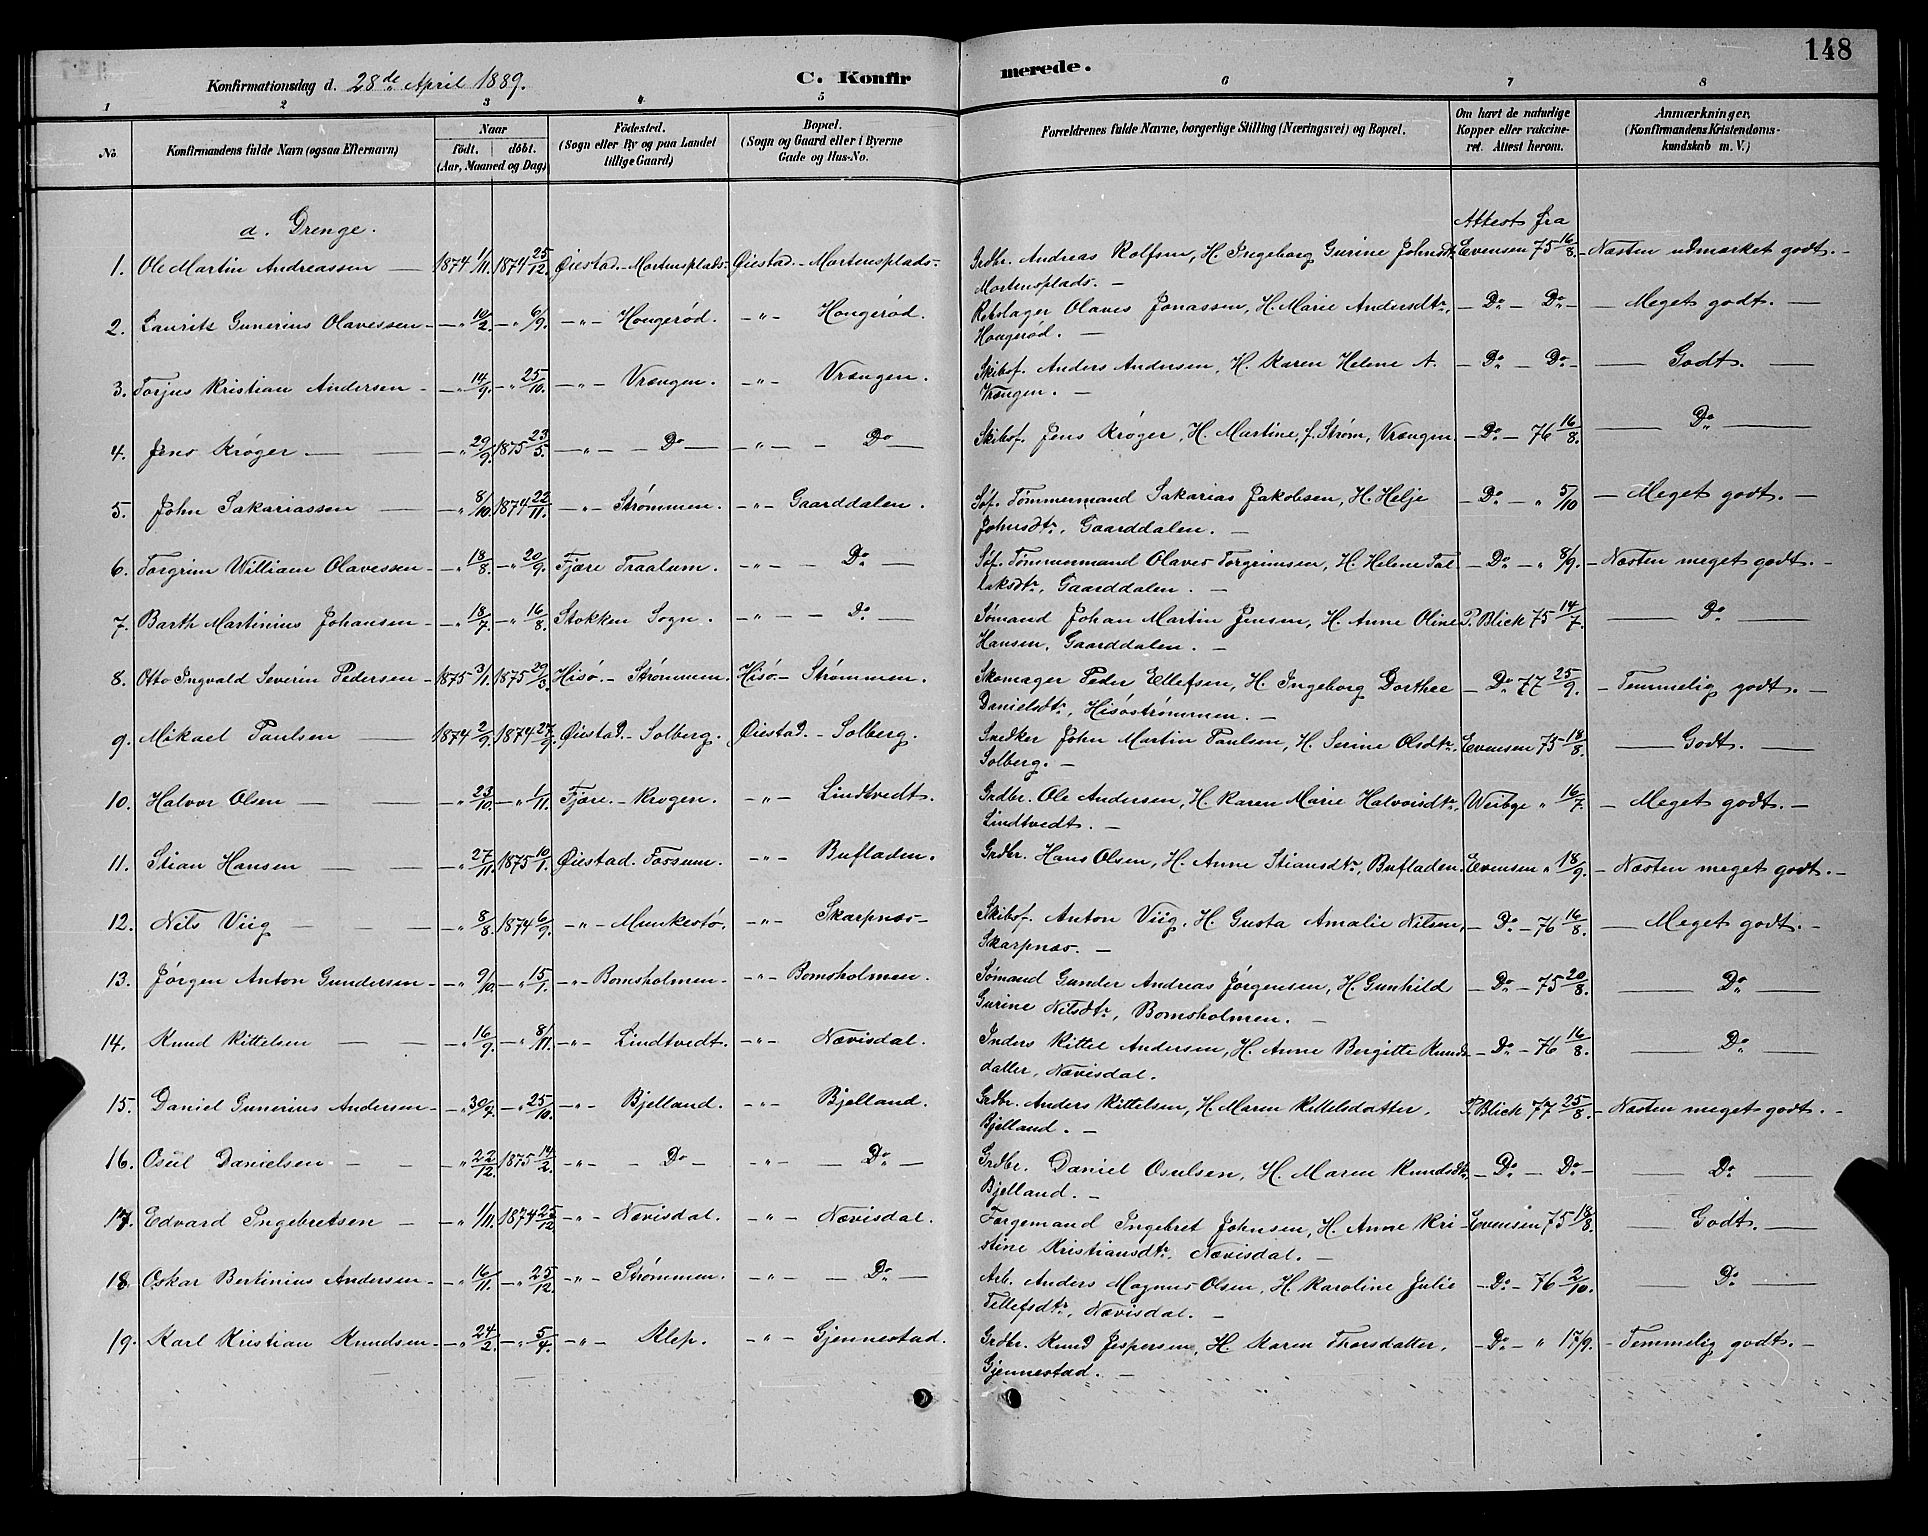 148
Konfirmationsdag d. 28de April 1889. C. Konfirmerede.
1 2 3 4 5 6 7 8
No. Konfirmandens fulde Navn (ogsaa Efternavn) Naar Födt. döbt. (Aar, Maaned og Dag) Födested. (Sogn eller By og paa Landet tillige Gaard) Bopæl. (Sogn og Gaard eller i Byerne Gade og Hus-No. Forældrenes fulde Navne, borgerlige Stilling (Næringsvei) og Bopæl. Om havt de naturlige Kopper eller vakcineret. Attest herom. Anmærkninger, (Konfirmandens Kristendomskundskab m. V.)
a. Drenge. Attest fra
1. Ole Martin Andreassen — 1874 1/11. 1874 25/12. Øiestad. - Mortensplads. Øiestad. - Mortensplads. Grdbr. Andreas Rolfsen, H. Ingeborg Gurine Johnsdtr. Evensen 75 16/8. - Næsten udmærket godt. -
Mortensplads. -
2. Laurits Gunerius Olavessen - -"- 10/2. -"- 6/9. -"- Hougerød. -"- Hougerød. Rebslager Olaves Jonassen, H. Marie Andersdtr, - Do - Do - - Meget godt. -
Hougerød. -
3. Torjus Kristian Andersen - -"- 14/9. -"- 25/10. -"- Vrængen. -"- Vrængen. Skibsf. Anders Andersen, H. Karen Helene A. - Do - Do - — Godt. —
Vrængen. -
4. Jens Krøger — -"- 29/9. 1875 23/5. -"- - Do - -"- - Do - Skibsf. Jens Krøger, H. Martine, f. Strøm, Vrængen - Do - 76 16/8. — Do —
5. John Sakariassen — -"- 8/10. 1874 22/11. -"- Strømmen. -"- Gaarddalen. Søf. Tømmermand Sakarias Jakobsen, H. Helje - Do - " 5/10 - Meget godt. -
Johnsdtr, Gaarddalen. -
6. Torgrim William Olavessen - -"- 18/8. -"- 20/9. Fjære Traalum. -"- - Do - Søf. Tømmermand Olaves Torgrimsen, H. Helene Tal- - Do - " 8/9. - Næsten meget godt. -
laksdtr, Gaarddalen. -
7. Barth Martinius Johansen - -"- 18/7. -"- 16/8. Stokken Sogn. -"- - Do - Sømand Johan Martin Jensen, H. Anne Oline P. Blick 75 14/7. — Do —
Hansen, Gaarddalen. -
8. Otto Ingvald Severin Pedersen - 1875 3/1. 1875 29/3. Hisø. - Strømmen. Hisø. - Strømmen. Skomager Peder Ellefsen, H. Ingeborg Dorthee - Do 77 25/9. - Temmelig godt. -
Danielsdtr, Hisøstrømmen. -
9. Mikael Paulsen — 1874 2/9. 1874 27/9. Øiestad. - Solberg. Øiestad. - Solberg. Snedker John Martin Paulsen, H. Serine Olsdtr, Evensen 75 18/8. — Godt. —
Solberg. -
10. Halvor Olsen — -"- 23/10. -"- 1/11. Fjære. - Krogen. -"- Lindtvedt. Grdbr. Ole Andersen, H. Karen Marie Halvorsdtr, Weibye " 16/7. - Meget godt. -
Lindtvedt. -
11. Stian Hansen — -"- 27/11. 1875 10/1. Øiestad. Fossum. -"- Bufladen. Grdbr. Hans Olsen, H. Anne Stiansdtr, Bufladen. Evensen " 18/9. - Næsten meget godt. -
12. Nils Viig — -"- 8/8. 1874 6/9. -"- Munkestø. -"- Skarpnæs- Skibsf. Anton Viig, H. Gusta Amalie Nilsen, - Do - 76 16/8. - Meget godt. -
Skarpnæs. -
13. Jørgen Anton Gundersen - -"- 9/10. -"- 15/1. -"- Bomsholmen - -"- Bomsholmen. Sømand Gunder Andreas Jørgensen, H. Gunhild - Do - 75 20/8. — Do —
Gurine Nilsdtr, Bomsholmen. -
14. Knud Kittelsen — -"- 16/9. -"- 8/11. -"- Lindtvedt. -"- Nævisdal. Inders Kittel Andersen, H. Anne Bergitte Knuds- - Do - 76 16/8. — Do —
datter, Nævisdal.
15. Daniel Gunerius Andersen - -"- 30/7. -"- 25/10. -"- Bjelland. -"- Bjelland. Grdbr. Anders Kittelsen, H. Maren Kittelsdatter, P. Blick 77 25/8. - Næsten meget godt. -
Bjelland. -
16. Osul Danielsen - -"- 22/12. 1875 14/2. -"- - Do - -"- - Do - Grdbr. Daniel Osulsen, H. Maren Knudsdtr, - Do - Do - — Do —
Bjelland. -
17. Edvard Ingebretsen - -"- 1/11. 1874 25/12. -"- Nævisdal. -"- Nævisdal. Forgemand Ingebret Johnsen, H. Anne Kri- Evensen 75 18/8. — Godt. —
stine Kristiansdtr. Nævisdal. -
18. Oskar Bertinius Andersen - -"- 16/11. -"- 25/12. -"- Strømmen. -"- - Do - Arb. Anders Magnus Olsen, H. Karoline Julie - Do - 76 2/10. — Do —
Tellefsdtr, Nævisdal. -
19. Karl Kristian Knudsen - -"- 24/2. -"- 5/4. -"- Klep. -"- Gjennestad. Grdbr. Knud Jespersen, H. Karen Thorsdatter, - Do - " 17/9. - Temmelig godt. -
Gjennestad. -